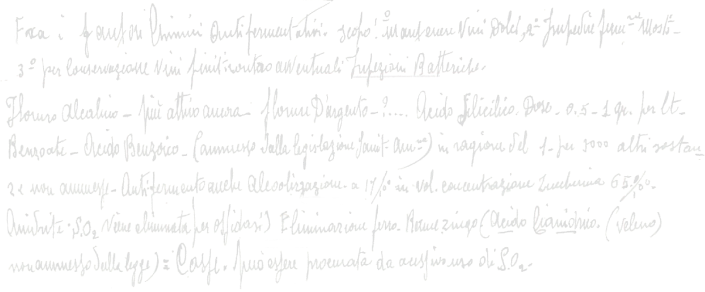 Fra i fattori Chimici Antifermentativi. scopo 1° mantenere Vini Dolci, 2° Impedire ferm. Mosti -
3° per conservazione Vini finiti contro avventuali Infezioni Batteriche.
Floruro Alcalino - più attivo ancora floruro D'argento - ?.... Acido Silicilico. Dose - 0.5 - 1 gr. per lt.
Benzoate - Acido Benzoico - (ammesso dalla legislazione Sanit. Am.) in ragione del 1 - per 1000 altri sostan
ze non ammesse - Antifermento anche Alcoolizzazione. a 17% in vol. concentrazione Zuccherina 65%.
Anidrite: SO₂ Viene eliminata per ossidasi) Eliminazione ferro. (Acido Cianidrico. (veleno)
non ammesso dalla legge) = Casse. può essere procurata da SO₂.